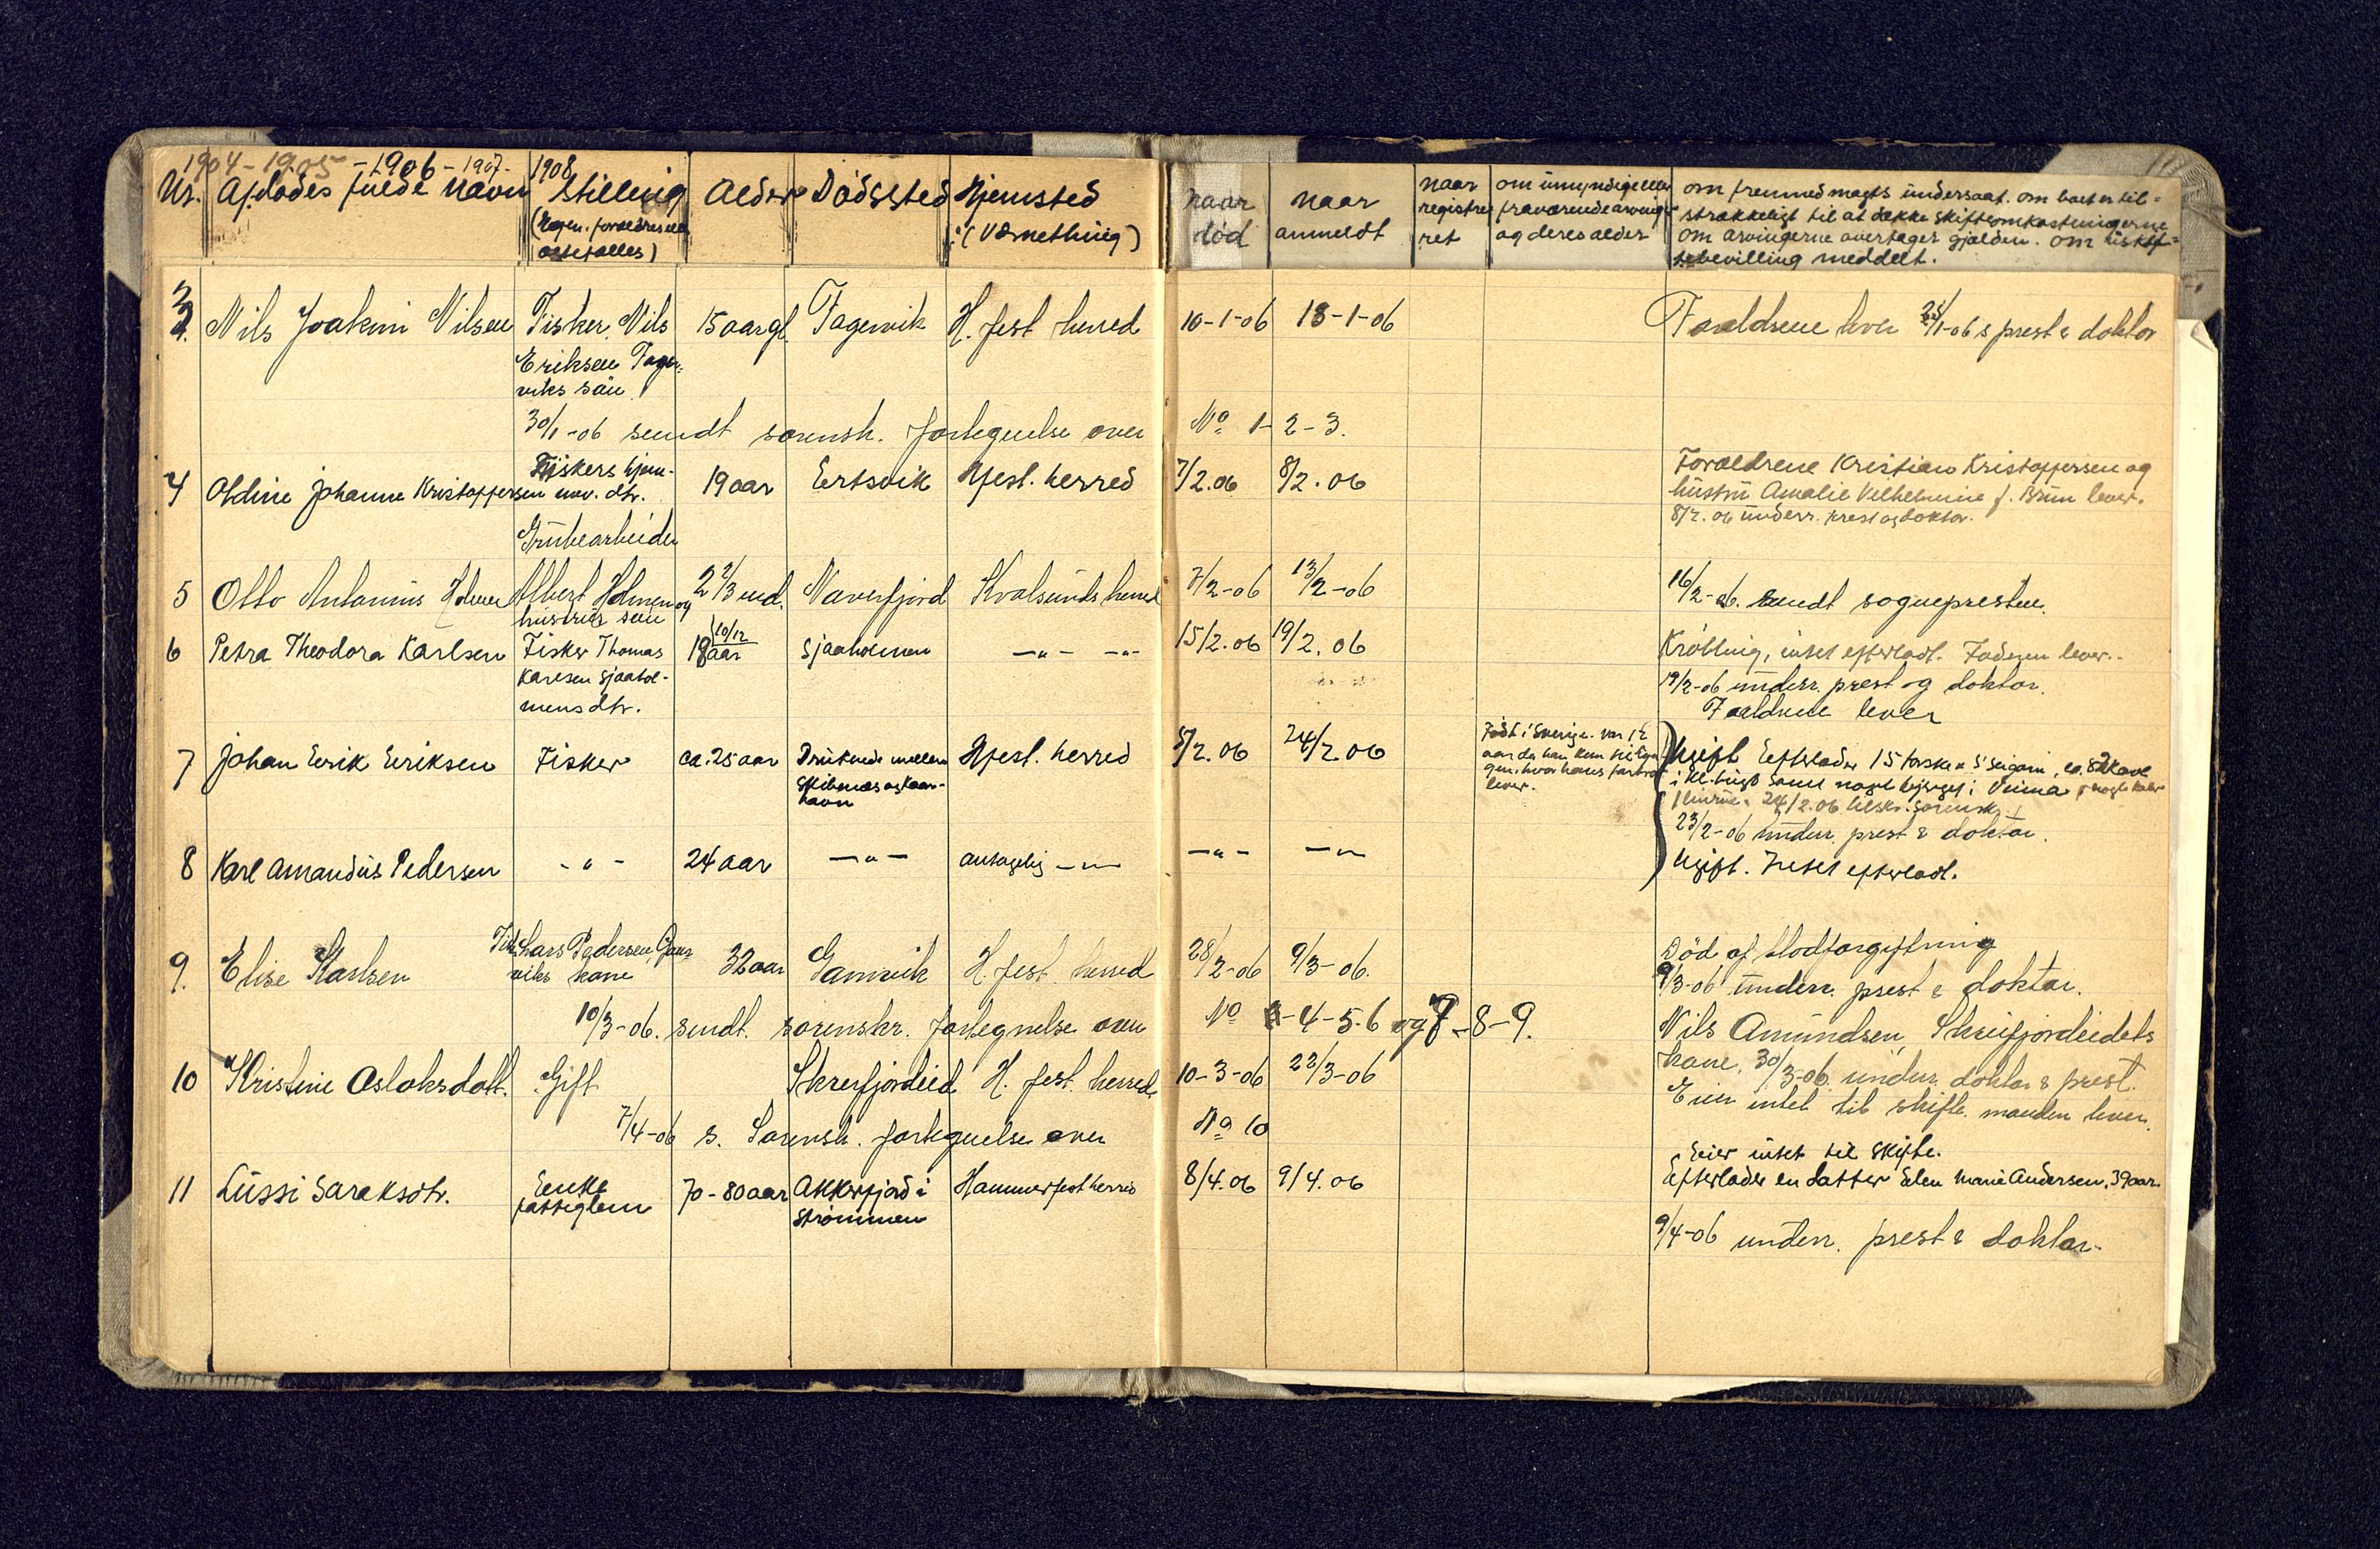 1904 - 1905 - 1906 - 1907 - 1908
Nr. Afdødes fulde navn Stilling Alder Dødssted Hjemsted naar død naar anmeldt naar registreret om umyndige eller fraværende arvinger og deres alder
(Egen, forældres eller ægtefælles) (Værnething)
om fremmed magts undersaat. om boet er til=
strækkeligt til at dække skifteomkostningerne
om arvingerne overtager gjælden. om uskif=
tebevilling meddelt.
3. Nils Joakim Nilsen Fisker Nils 15 aar gl. Fagervik H.fest herred 10-1-06 18-1-06 Forældrene lever 25/1-06 s prest & doktor
Eriksen Fager-
viks søn
30/1-06 sendt sorensk. fortegnelse over No 1-2-3.
4 Oldine Johanne Kristoffersen Fiskers hjem- 19 aar Ertsvik Hfest. herred 7/2.06 8/2.06 Forældrene Kristian Kristoffersen og
mev. dtr. hustru Amalie Vilhelmine f. Brun lever.
8/2.06 underr. prest og doktor.
Grubearbeider
5 Otto Antonius Holmen Albert Holmen og 2 2/3 md. Naverfjord Kvalsunds herred 7/2-06 13/2-06 16/2-06. sendt sognepresten.
hustrus søn
6 Petra Theodora Karlsen Fisker Thomas 18 10/12 aar Sjaaholmen -"- -"- 15/2.06 19/2.06 Krøbling, intet efterladt. Faderen lever.
Karlsen Sjaahol-
mens dtr.
19/2-06 underr. prest og doktor.
Forældrene lever
7 Johan Erik Eriksen Fisker ca. 25 aar Druknede mellem Hfest. herred 5/2.06 24/2.06 Født i Sverige. var 12
Skibnæs og Kaar-
havn
aar da han kom til
hvor hans far
lever.
Ugift Efterlader 15 torske & 5 seigarn, ca. 8
i Kl. bugt samt noget bjerget i
24/2.06 tilskr. sorensk.
23/2-06 underr. prest & doktor.
8 Karl Amandus Pedersen -"- 24 aar -"- antagelig -"- -"- -"- Ugift. Intet efterladt.
9. Elise Karlsen Fisk. Lars Pedersen, Gam- 32 aar Gamvik H.fest herred 28/2-06 9/3-06. Død af blodforgiftning
viks kone 9/3-06 underr. prest & doktor.
10/3-06. sendt. sorenskr. fortegnelse over No -4-5-6 og 7-8-9.
Nils Amundsen, Skreifjordeidets
10 Kristine Aslaksdatt. Gift Skreifjordeid H.fest. herred 10-3-06 23/3-06 kone. 30/3-06 underr. doktor & prest.
Eier intet til skifte. manden lever.
7/4-06 s. Sorensk. fortegnelse over No 10
Eier intet til skifte.
11 Lussi Saraksdtr. Enke 70-80 aar Akkerfjord i Hammerfest herred 8/4.06 9/4.06 Efterlader en datter Elen Marie Andersen, 39 aar.
fattiglem Strømmen
9/4-06 underr. prest & doktor.